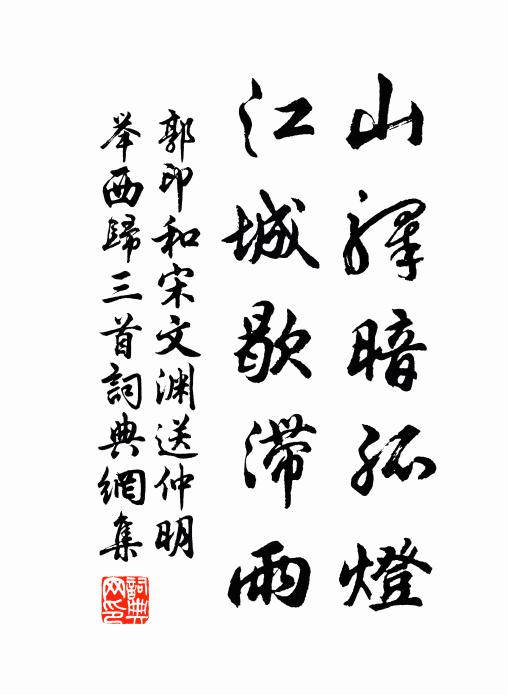 山驛暗孤燈
江城歇滯雨
郭印和宋文渊送仲明
举西歸三首詞典網集
詞典网印